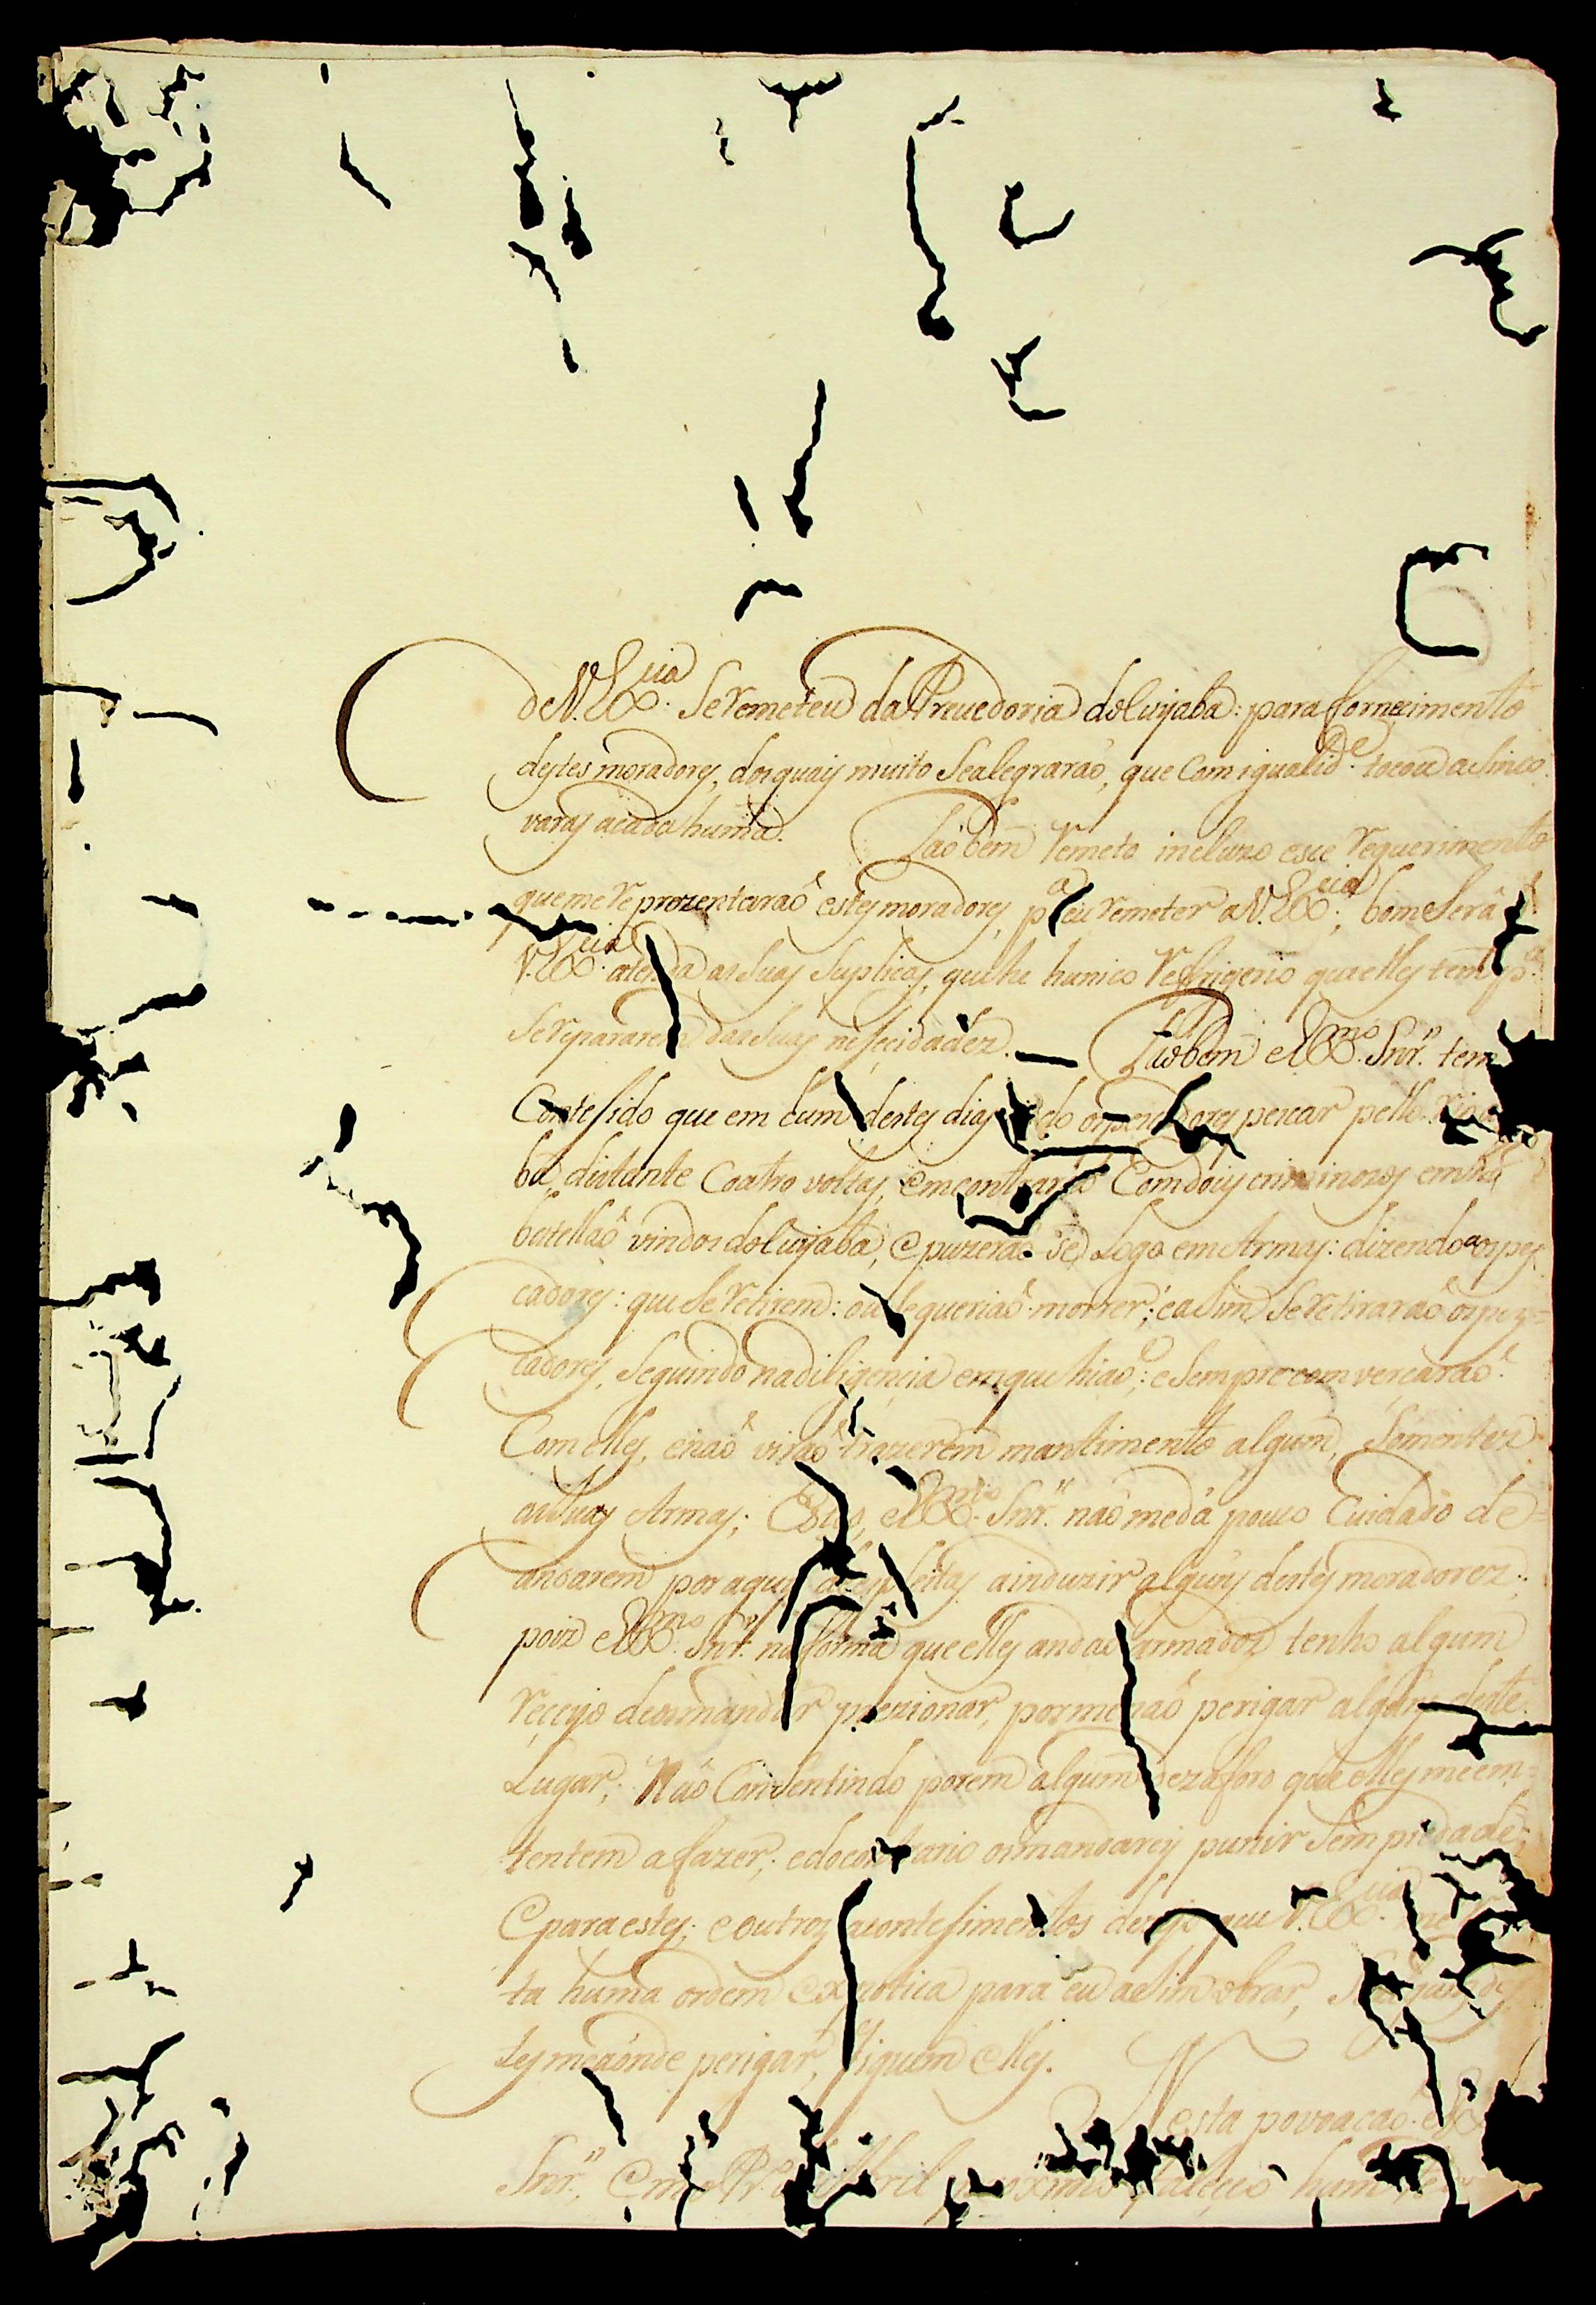 de V. Ex.cia Se remeteu da Provedoria do Cuyaba: para fornecimento
destes moradores, dos quais muito Sealegrarão, que Com igualid.e tocou a Sinco
varas acada huma. Taobem Remeto incluzo este Requerimento
que me Reprezentarão estes moradores, p.a eu remeter a V. Ex.cia; bom Serâ
V. Ex.cia atenda as Suas Suplicas, que he hunico Refrigerio que elles tem p.a
Se repararem das Suas nesecidadez. Taobem Ex.mo Snr.' tem
Contesido que em hum destes dias os pescadores pescar pello
ba, distante Coatro voltas, emcontrarão Com dois criminozos em hu
batellão vindos do Cuyaba, e puzerão se Logo em Armas: dizendo aos pes
cadores: que Se retirem: ou Se querião morrer; e asim Se retirarão os pes=
cadores, Seguindo na diligencia em que hião; e Sempre comverçarão
Com elles, e não virão trazerem mantimento algum, Somentez
as Suas Armas; Estes, Ex.mo Snr.' não me dá pouco Cuidado de=
andarem por aqui as espreitas a induzir alguns destes moradorez;
pois Ex.mo Snr.' na forma que elles andão armadoz tenho algum
receyo de os mandar prezionar, por me não perigar alguns deste
Lugar; Não Consentindo porem algum dezaforo que elles me em=
tentem a fazer; e do contrario os mandarey punir Sem piedade;
E para estes; e outros acontesimentos dezejo que V. Ex.cia
ta huma ordem expotica para eu asim obrar,
tes me aonde perigar, fiquem elles.
Nesta povoação
Snr.', em o Pr.o de Abril proximo faleceo hum